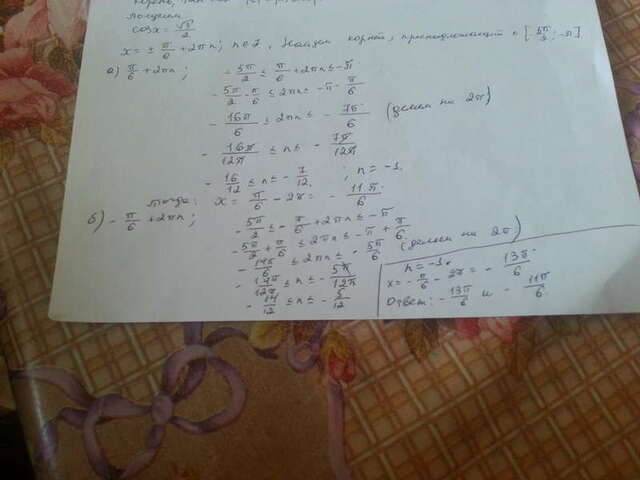 получим
cosx = √3/2
x = ± π/6 + 2πn; n∈Z, Найдём корней, принадлежащих [-5π/2; -π]
а) π/6 + 2πn; -5π/2 ≤ π/6 + 2πn ≤ -π
-5π/2 - π/6 ≤ 2πn ≤ -π - π/6
-16π/6 ≤ 2πn ≤ -7π/6 (делим на 2π)
-16π/12π ≤ n ≤ -7π/12π
-16/12 ≤ n ≤ -7/12; n = -1.
тогда: x = π/6 - 2π = -11π/6.
б) -π/6 + 2πn; -5π/2 ≤ -π/6 + 2πn ≤ -π
-5π/2 + π/6 ≤ 2πn ≤ -π + π/6
-14π/6 ≤ 2πn ≤ -5π/6 (делим на 2π)
-14π/12π ≤ n ≤ -5π/12π
-14/12 ≤ n ≤ -5/12
n = -1.
x = -π/6 - 2π = -13π/6
Ответ: -13π/6 и -11π/6.